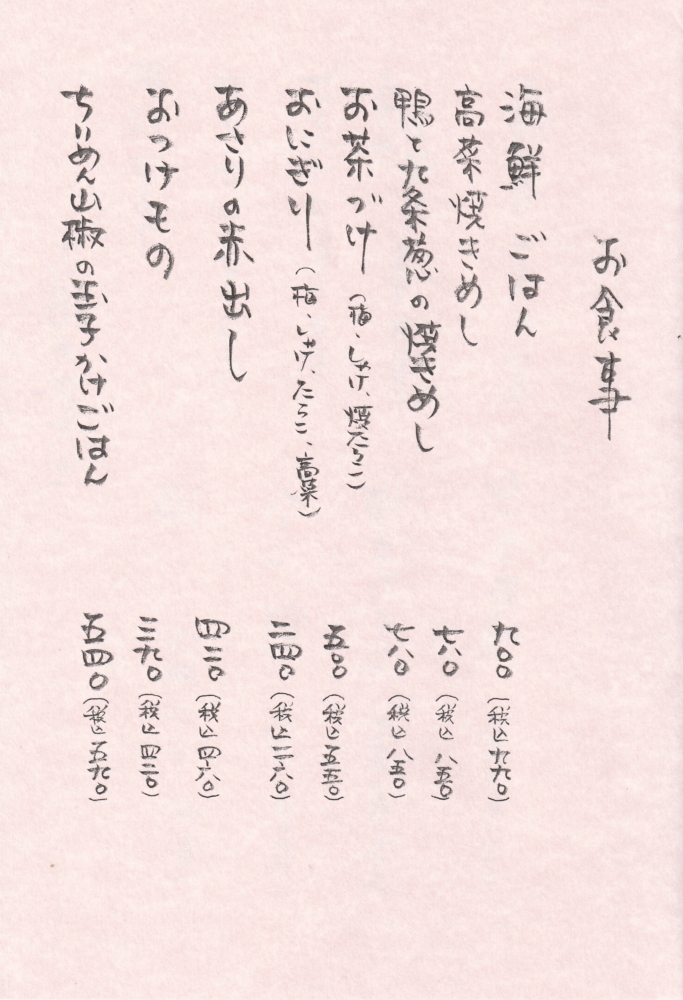 お食事
海鮮ごはん 九〇〇(税込九九〇)
高菜焼きめし 七八〇(税込八五〇)
鴨と九条葱の焼きめし 七八〇(税込八五〇)
お茶づけ(梅、しゃけ、焼たらこ) 五〇〇(税込五五〇)
おにぎり(梅、しゃけ、たらこ、高菜) 二四〇(税込二六〇)
あさりの赤出し 四二〇(税込四六〇)
おつけもの 三九〇(税込四二〇)
ちりめん山椒の玉子かけごはん 五四〇(税込五九〇)